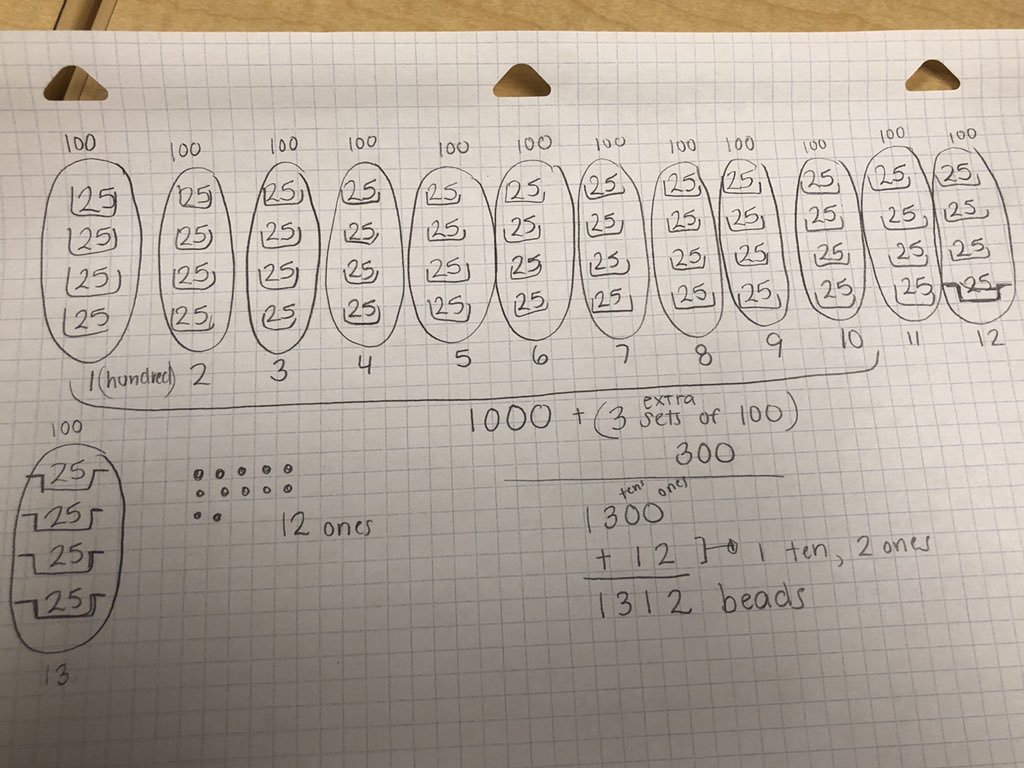 100 100 100 100 100 100 100 100 100 100 100 100
25 25 25 25 25 25 25 25 25 25 25 25
25 25 25 25 25 25 25 25 25 25 25 25
25 25 25 25 25 25 25 25 25 25 25 25
25 25 25 25 25 25 25 25 25 25 25 25
1 (hundred) 2 3 4 5 6 7 8 9 10 11 12
1000 + (3 extra sets of 100)
300
100
25
25
25
25
13
12 ones
tens ones
1300
+ 12 1 ten, 2 ones
1312 beads